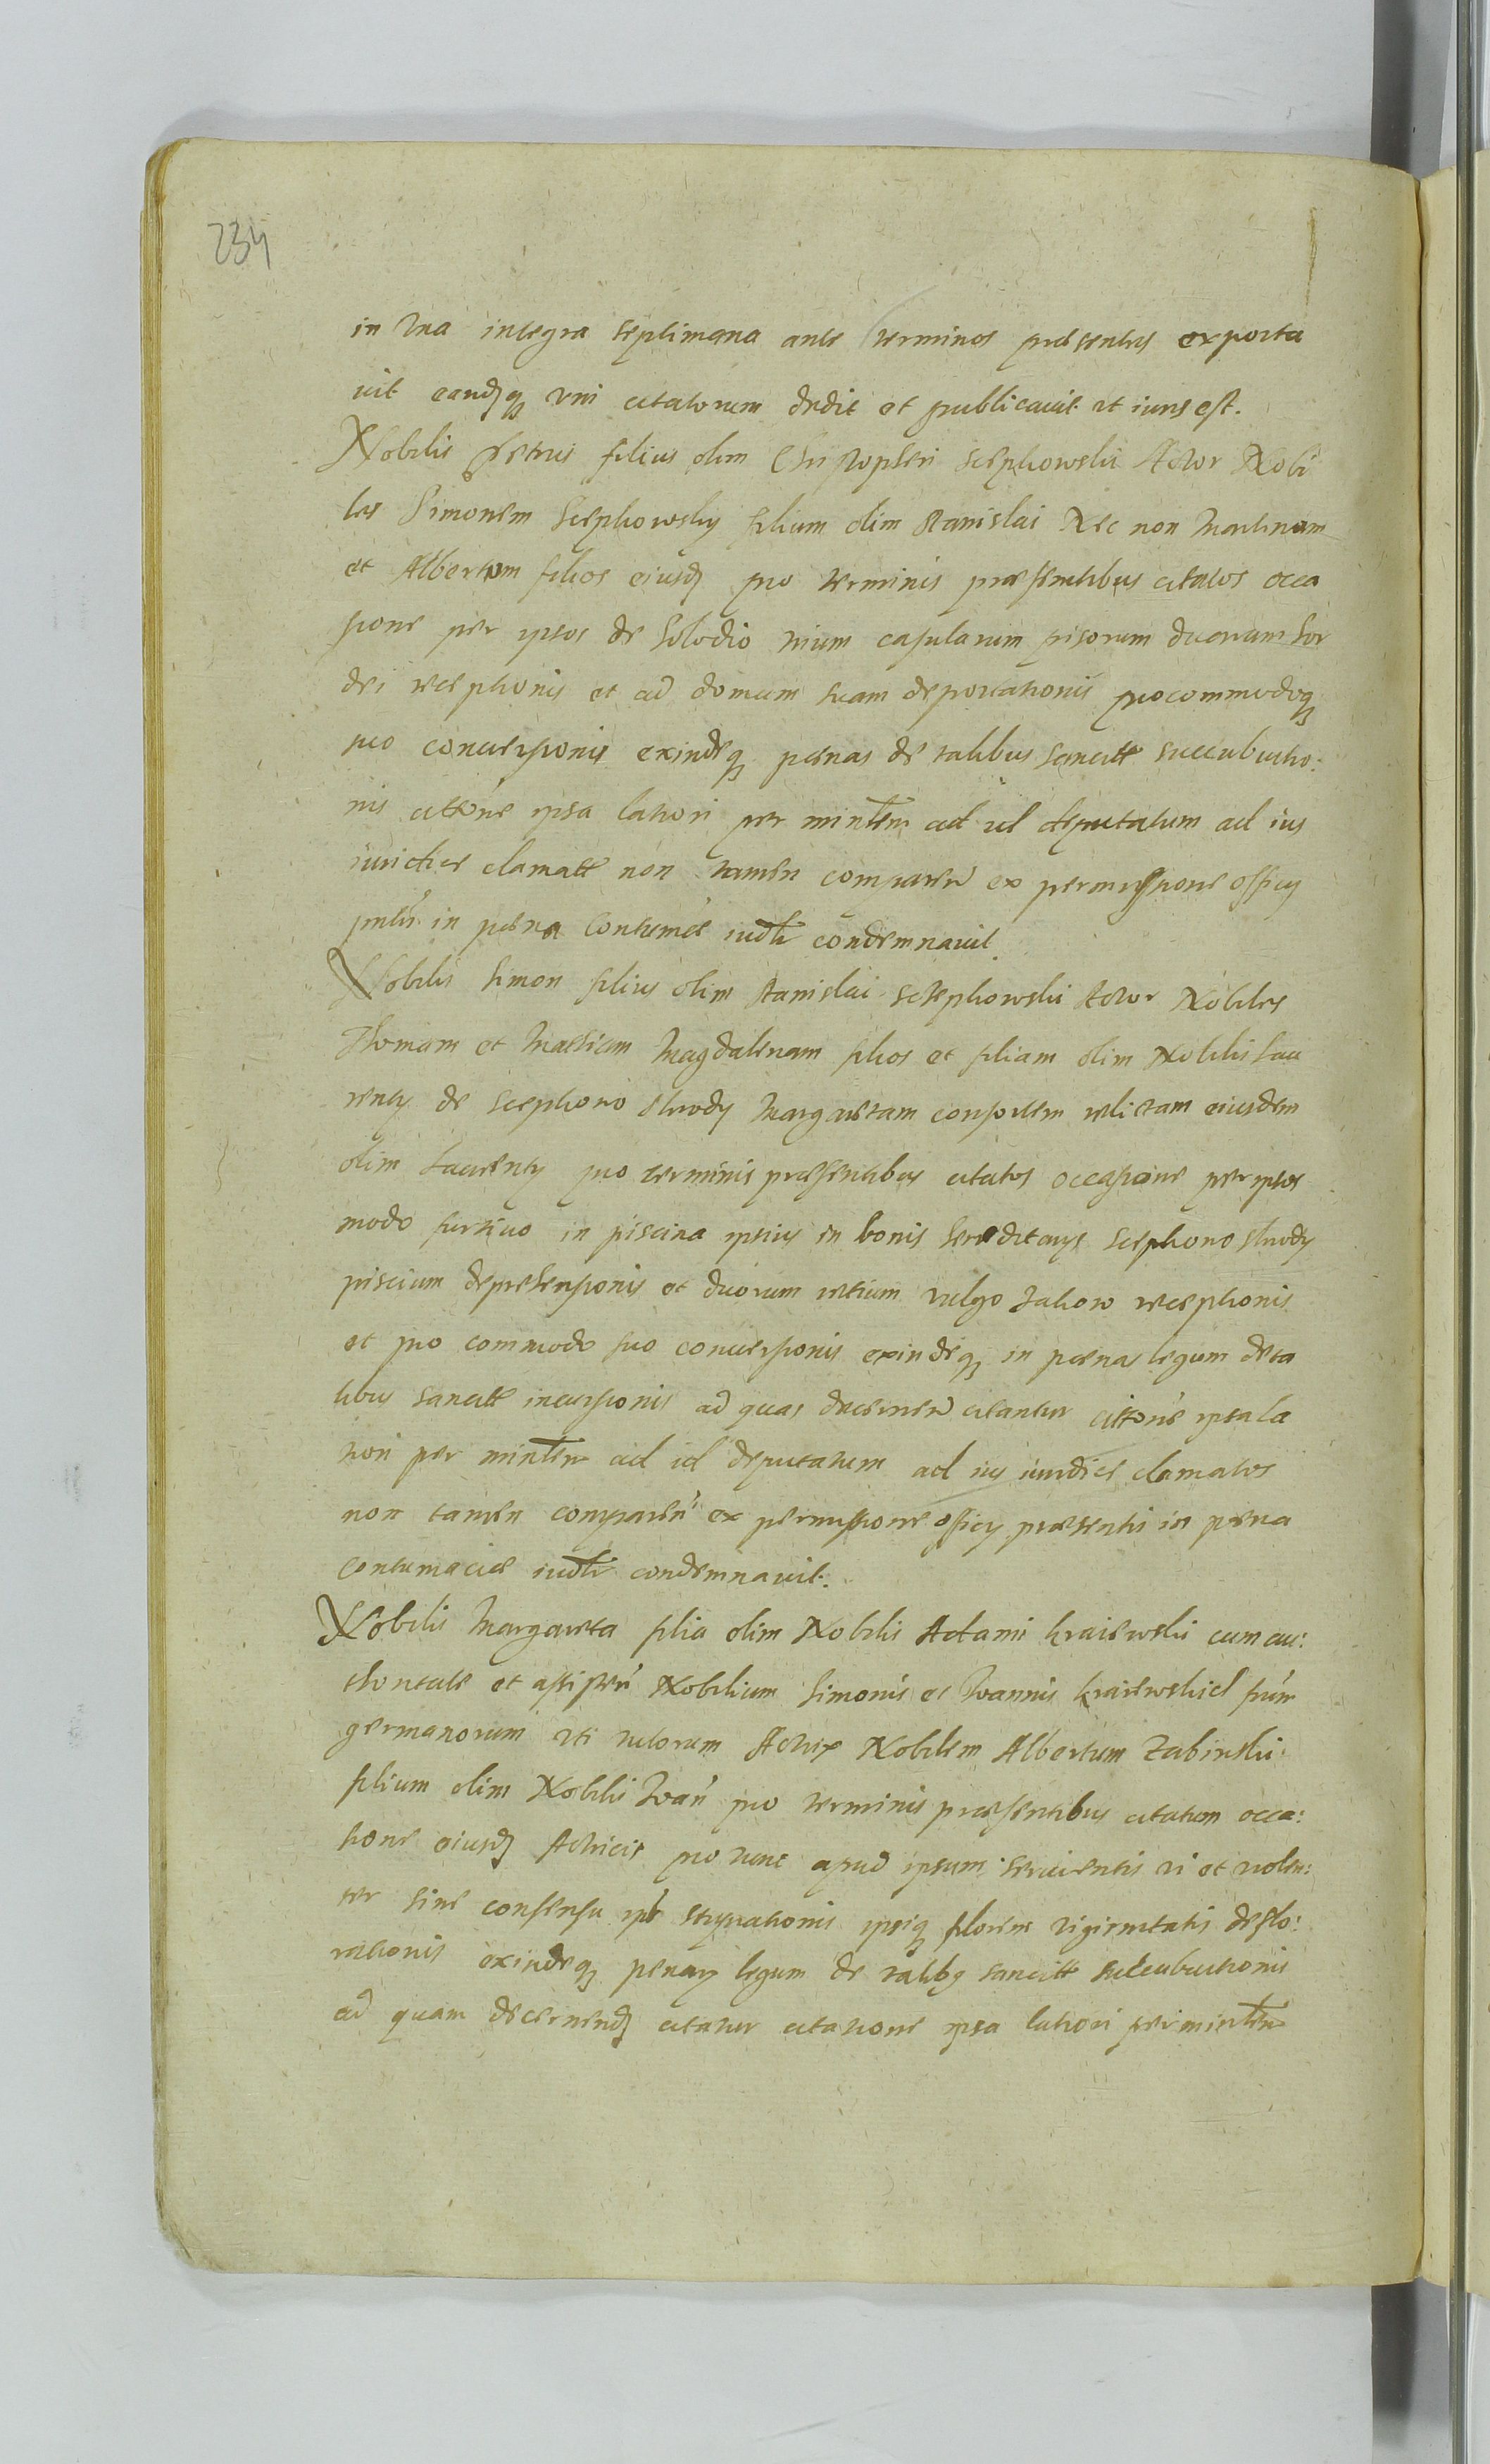 234
in Una integra septimana ante terminos præsentes exporta
uit eandẽq; vni citatorum dedit et publicauit ut iuris est.
Nobilis Petrus filius olim Christopheri Sciephowskii Actor Nobi
les Simonem Sciephowsky filium olim Stanislai Nec non Martinum
et Albertum filios eiusd pro terminis præsentibus citatos occa
sione per ipsos de holodio trium capularum pisorum duarum hor
dei receptionis et ad domum suam deportationis pro commodoq;
suo conuersionis exindeq; pænas de talibus sancitt succubuitio:
nis cittône ipsa latiori per mintem ad id deputatum ad ius
iuridice clamatt non tamen comparen ex permissione officij
pntis in pæna Contumâe iudtr condemnauit.
Nobilis Simon filius olim Stanislai Sciephowskii Actor Nobiles
Thomam et Mathiam Magdalenam filios et filiam olim Nobilis Lau
rentij de Sciephowo Chrody Margaretam consortem relictam eiusdem
olim Laurentij pro terminis præsentibus citatos occasione per ipsos
modo furtiuo in piscina ipsius in bonis hereditarijs Sciephowo Chrody
piscium deprehensionis et duorum retium vulgo zakow receptionis
et pro commodo suo conuersionis exindeq; in pænas legum de ta
libus sancitt incursionis ad quas decernen citantur cittône ipsa la
tiori per mintem ad id deputatum ad ius iuridice clamatos
non tamen comparen ex permissione officij præsentis in pæna
contumaciæ iudtr condemnauit.
Nobilis Margareta filia olim Nobilis Adami Kraiewskii cum au:
thoritate et assisten Nobilium Simonis et Ioannis Kraiewskich frũm
germanorum uti tutorum Actrix Nobilem Albertum Zabinskii
filium olim Nobilis Ioan pro terminis præsentibus citatum occa:
sione eiusd Actricis pro tunc apud ipsum seruientis ui et uiolen:
ter sine consensu ipsi stuprationis ipsiq; florem uirginitatis deflo:
rationis exindeq; penarum legum de talibq sancitt succubuitionis
ad quam decernend citatur citatione ipsa latiori per mintem